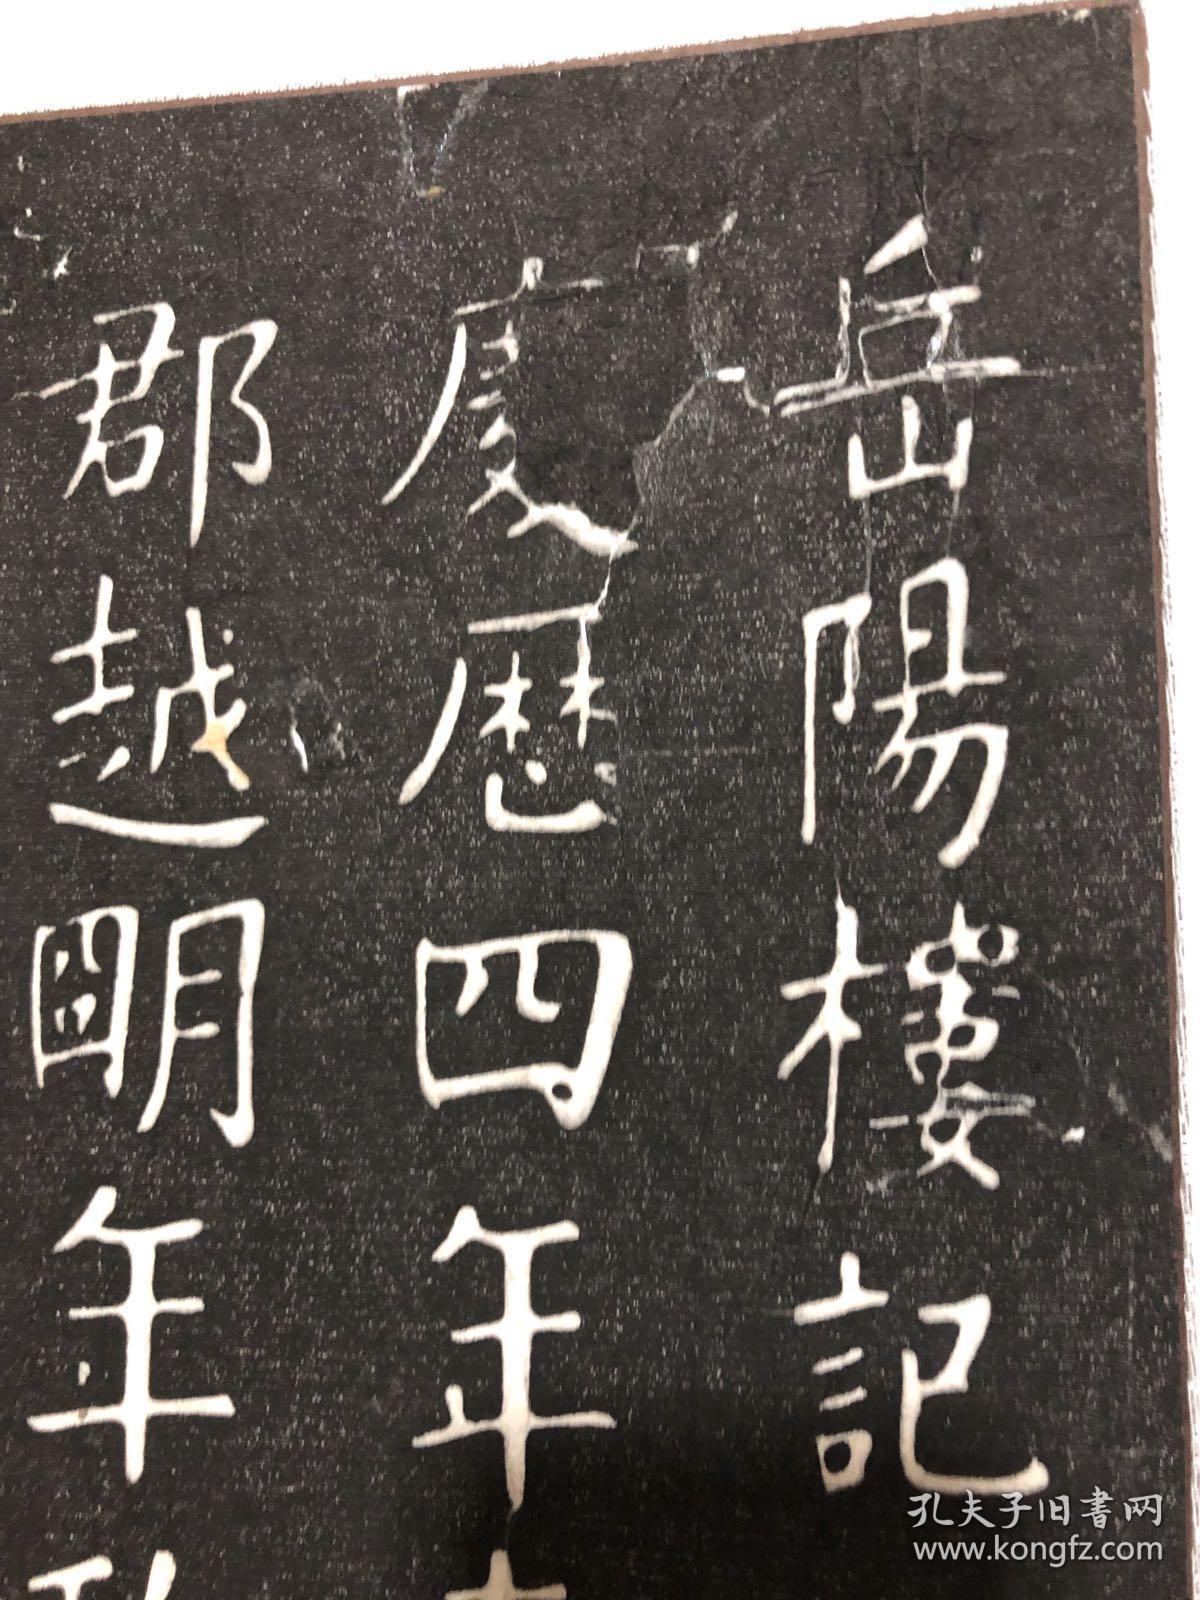 岳陽樓記
慶歷四年
郡越明年
孔夫子旧書网
www.kongfz.com